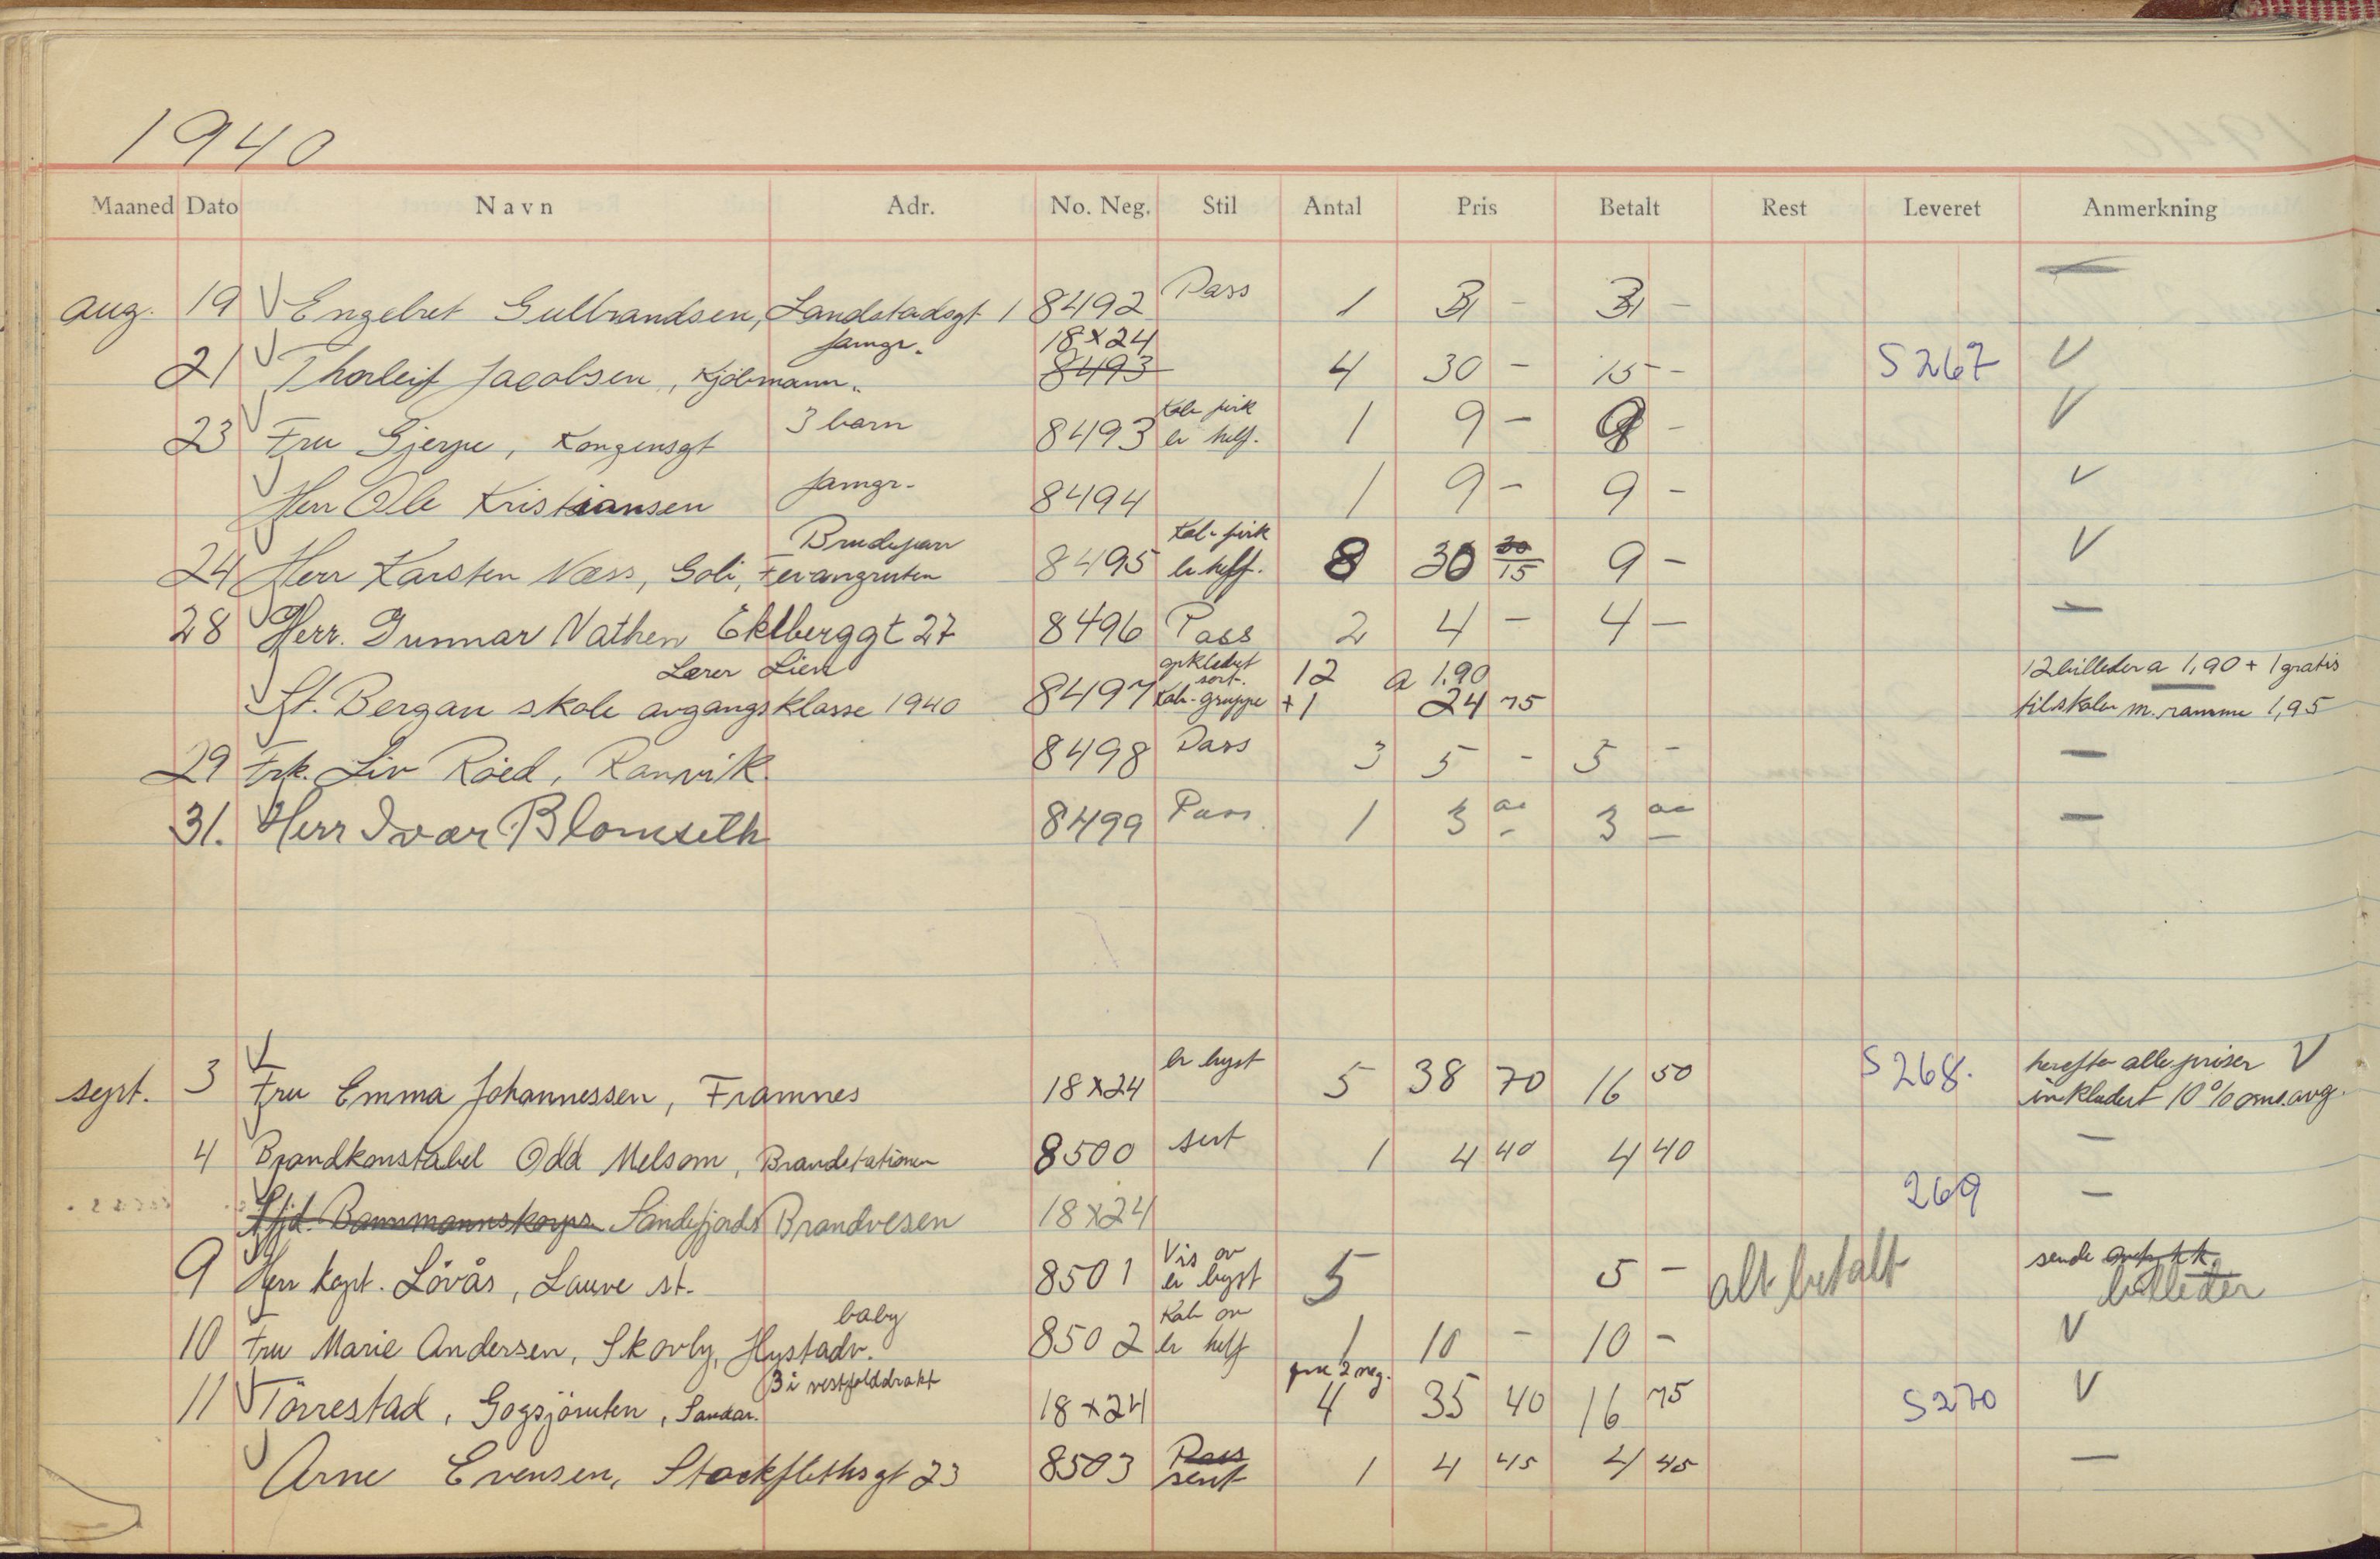 1940
Maaned Dato Navn Adr. No. Neg. Stil Antal Pris Betalt Rest Leveret Anmerkning
aug. 19 Engebret Gulbrandsen, Landstadsgt 1 8492 Pass 1 3 - 3 - —
famgr. 18x24
21 Thorleif Jacobsen, Kjöbmann. 8493 4 30 - 15 - S 267 V
3 barn
23 Fru Gjerpe, Kongensgt 8493 er helf. 1 9 - 9 - V
Herr Ole Kristiansen famgr. 8494 1 9 - 9 - V
Brudepar
24 Herr Karsten Næss, Goli, Fevangruten 8495 er helf. 8 30 15 9 - V
28 Herr. Gunnar Nathen Eklberggt 27 8496 Pass 2 4 - 4 - —
Lærer Lien opklebet sort. 12 a 1.90 12 billeder a 1,90 + 1 gratis
St. Bergan skole avgangsklasse 1940 8497 Kab-gruppe +1 24 75 til skolen m. ramme 1,95
29 Frk. Liv Röed, Ranvik 8498 Pass 3 5 - 5 - —
31. Herr Ivar Blomseth 8499 Pass 1 3 - 3 - —
er byst herefter alle priser V
sept. 3 Fru Emma Johannessen, Framnes 18x24 5 38 70 16 50 S 268. inkludert 10% oms. avg.
4 Brandkonstabel Odd Melsom, Brandstationen 8500 1 4 40 4 40 —
Sfjd. Sandefjords Brandvesen 18x24 269 —
Vis ov sende
9 Herr kapt. Lövås, Lauve st. 8501 er byst 5 5 - alt betalt billeder
baby Kab ov
10 Fru Marie Andersen, Skovly, Hystadv. 8502 er helf 1 10 - 10 - V
3 i vestfolddrakt 2 neg.
11 Törrestad, Gogsjöruten, Sandar. 18x24 4 35 40 16 75 S270 V
Pass
Arne Evensen, Stockflethsgt 23 8503 1 4 45 4 45 —